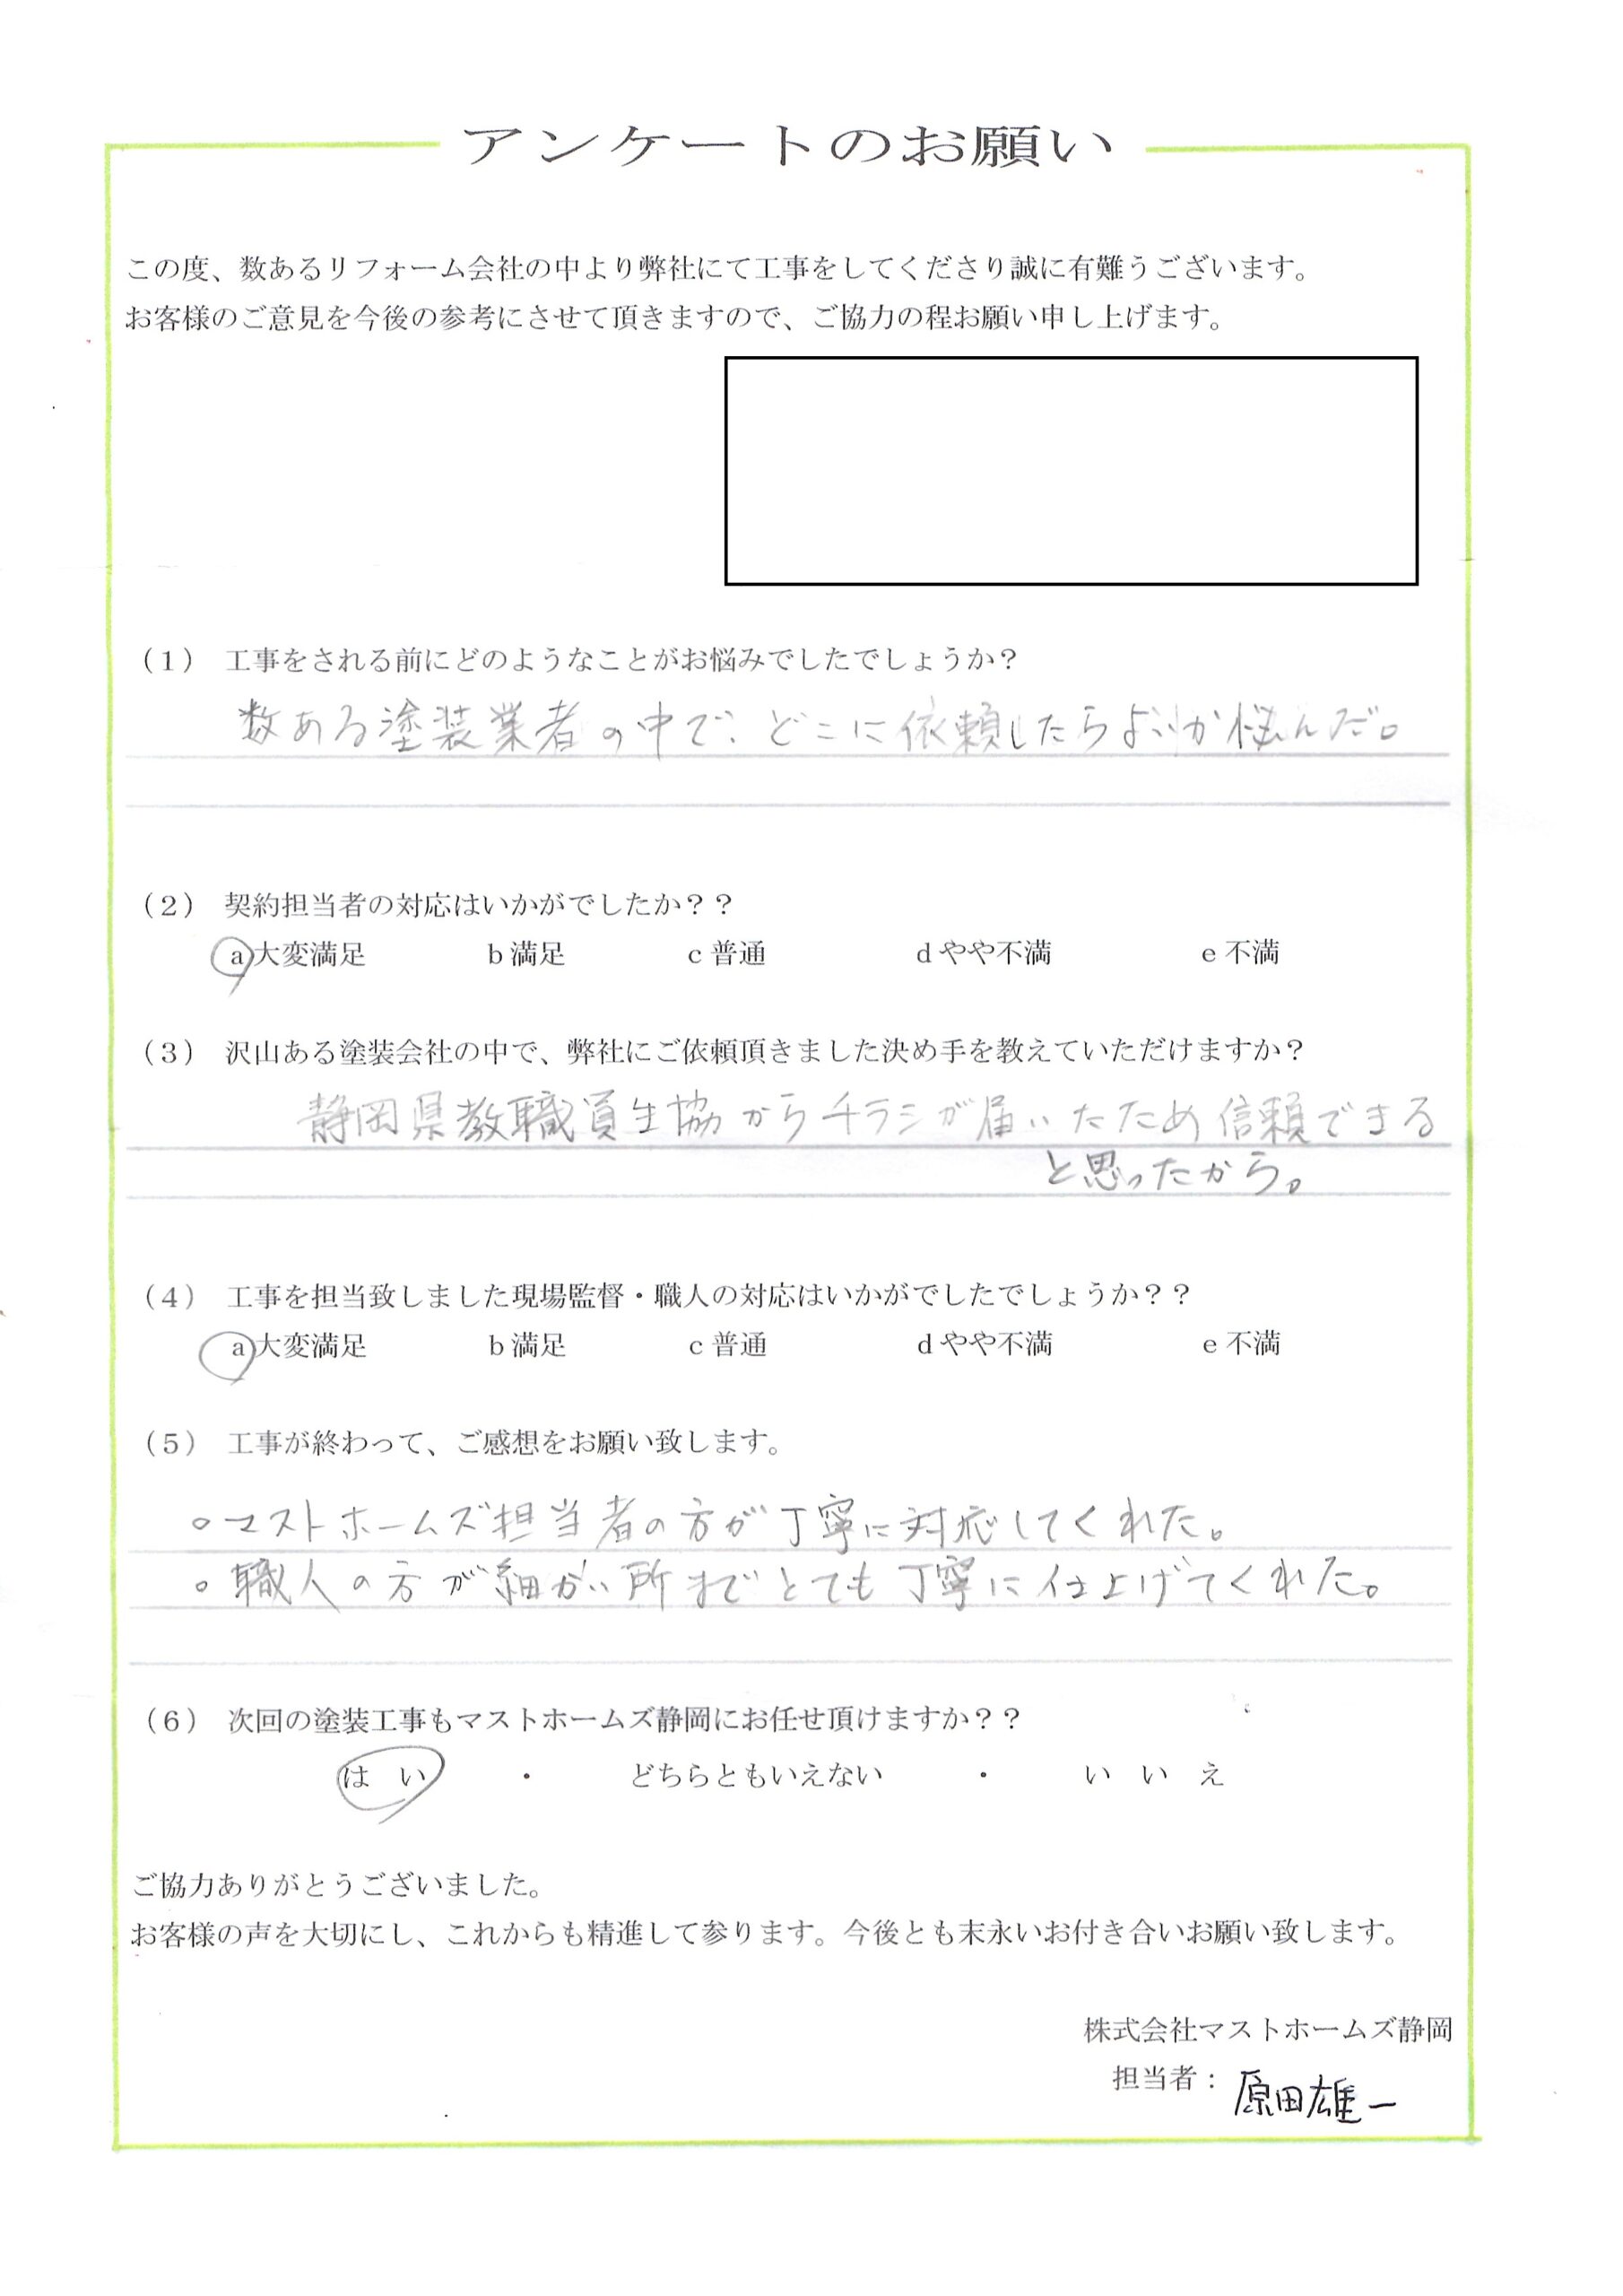 アンケートのお願い
この度、数あるリフォーム会社の中より弊社にて工事をしてくださり誠に有難うございます。
お客様のご意見を今後の参考にさせて頂きますので、ご協力の程お願い申し上げます。
（1） 工事をされる前にどのようなことがお悩みでしたでしょうか？
数ある塗装業者の中で、どこに依頼したらよいか悩んだ。
（2） 契約担当者の対応はいかがでしたか？？
a 大変満足 b 満足 c 普通 d やや不満 e 不満
（3） 沢山ある塗装会社の中で、弊社にご依頼頂きました決め手を教えていただけますか？
静岡県教職員生協からチラシが届いたため信頼できる
と思ったから。
（4） 工事を担当致しました現場監督・職人の対応はいかがでしたでしょうか？？
a 大変満足 b 満足 c 普通 d やや不満 e 不満
（5） 工事が終わって、ご感想をお願い致します。
○マストホームズ担当者の方が丁寧に対応してくれた。
○職人の方が細かい所までとても丁寧に仕上げてくれた。
（6） 次回の塗装工事もマストホームズ静岡にお任せ頂けますか？？
は い ・ どちらともいえない ・ い い え
ご協力ありがとうございました。
お客様の声を大切にし、これからも精進して参ります。今後とも末永いお付き合いお願い致します。
株式会社マストホームズ静岡
担当者：原田雄一